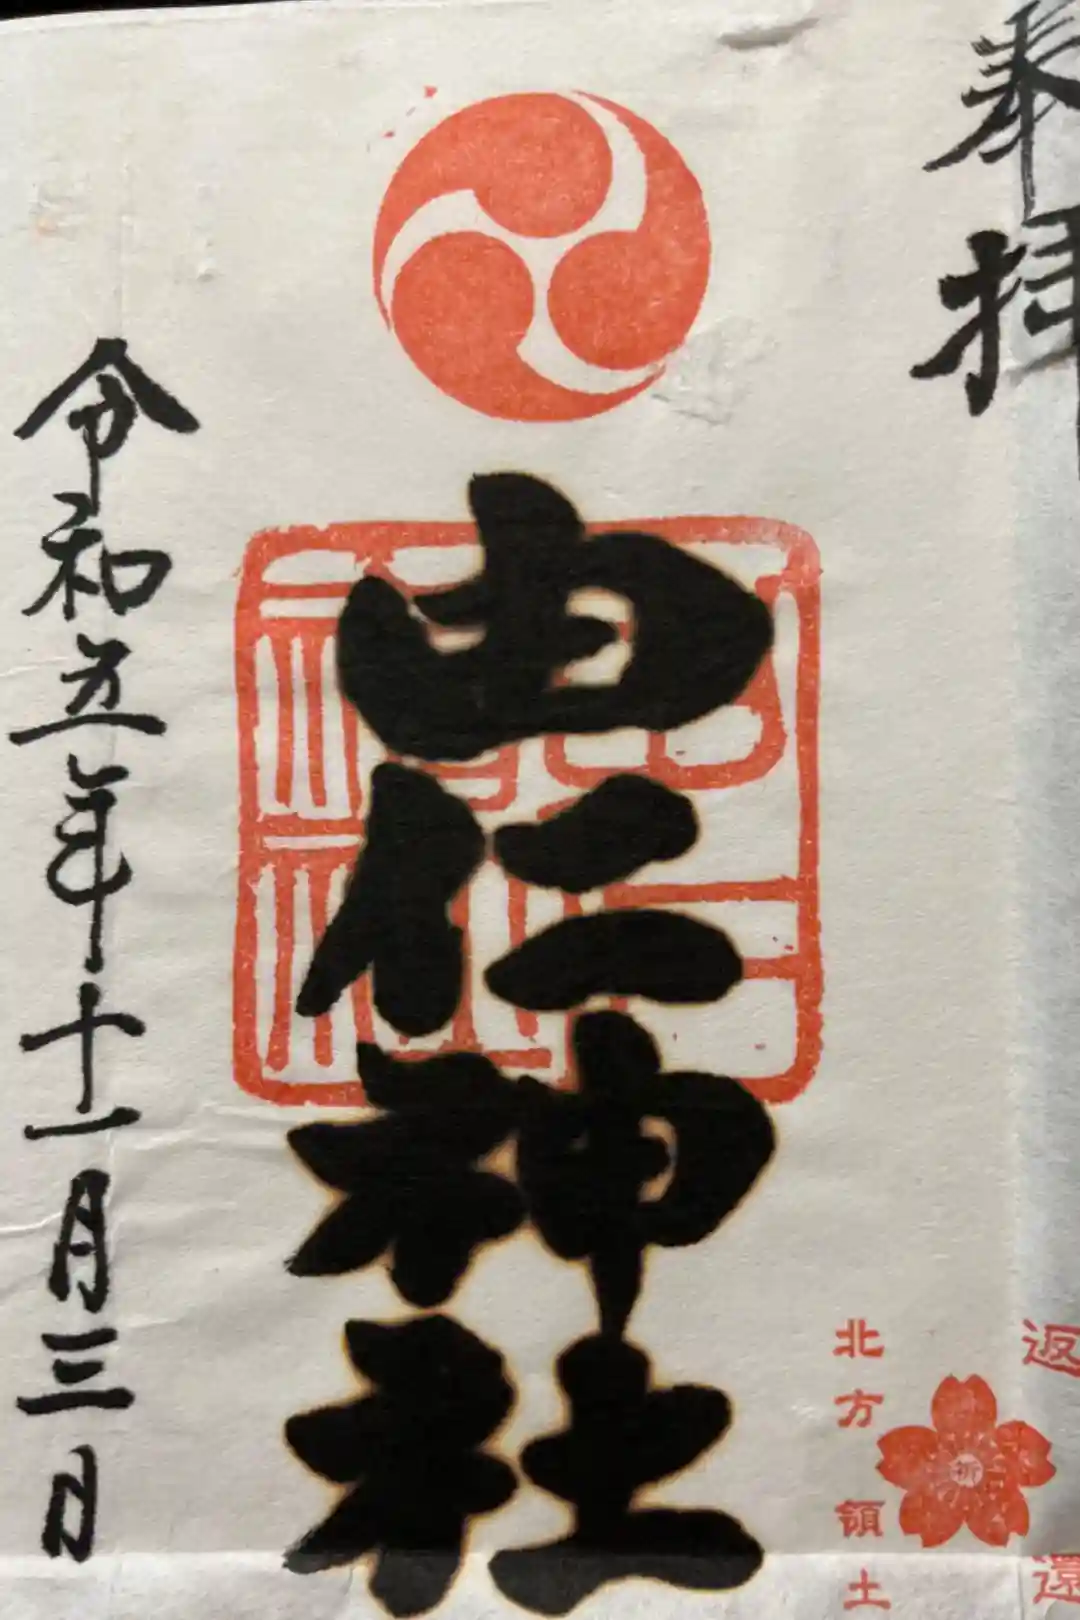 奉拝
返還
北方領土
祈
由仁神社
令和五年十一月三日